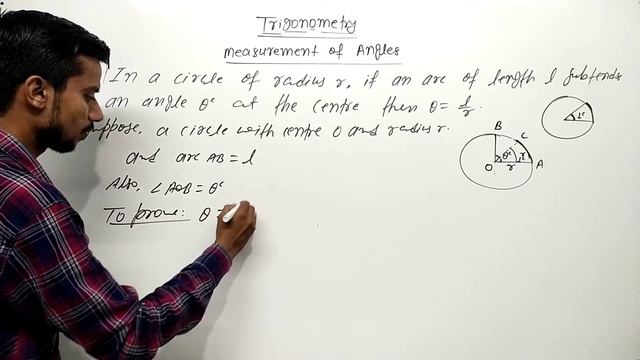 Trigonometry
Measurement of Angles
In a circle of radius r, if an arc of length l subtends
an angle θᶜ at the centre then θ = l/r.
Suppose, a circle with centre O and radius r.
and arc AB = l
Also, ∠AOB = θᶜ
To prove: θ =
B
C
θᶜ
O
r
A
1ᶜ